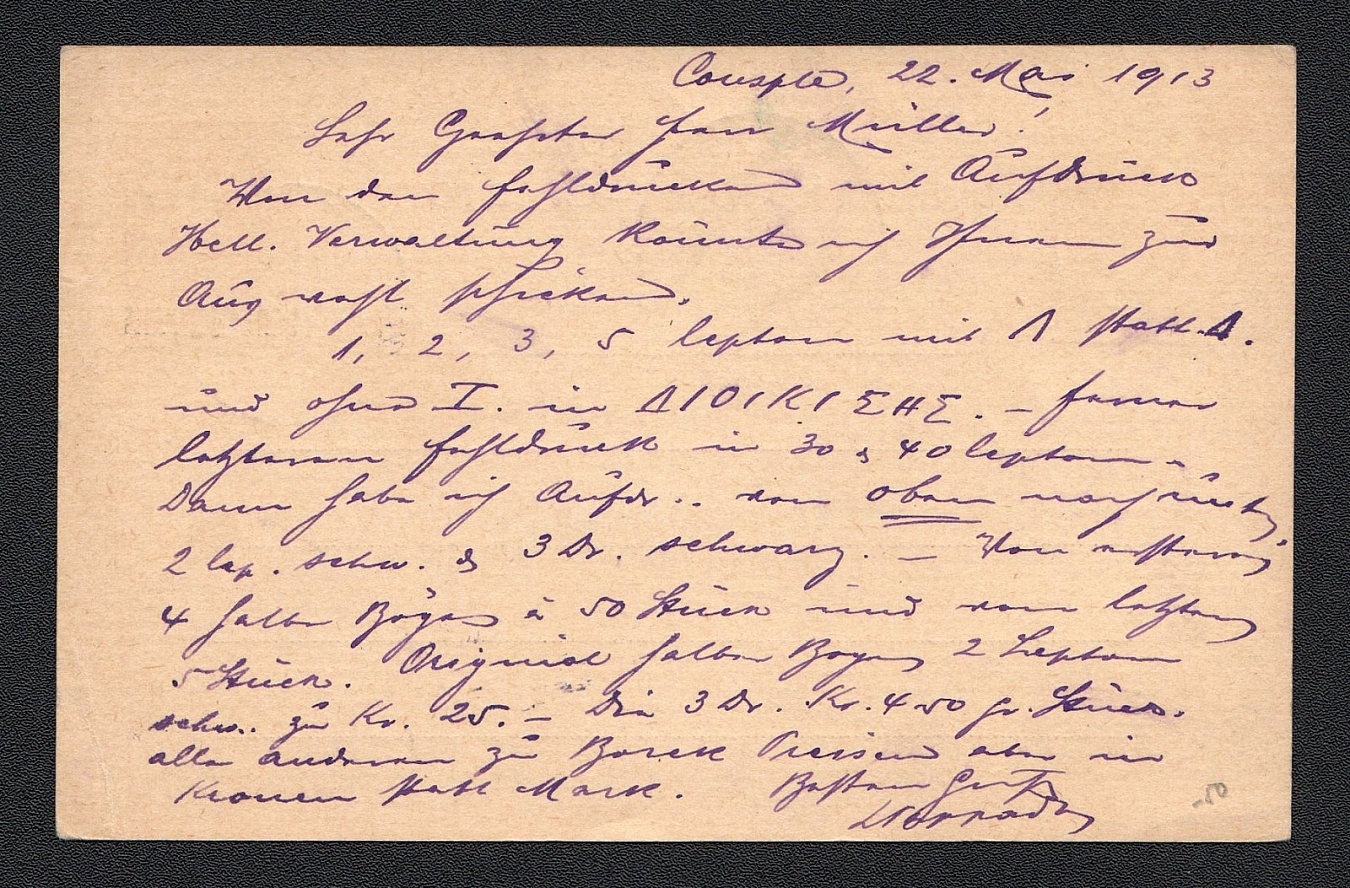 Conspls, 22. Mai 1913
Sehr Geehrter Herr Müller!
Von den Fehldrucken mit Aufdruck
Hell. Verwaltung könnte ich Ihnen zur
Auswahl schicken.
1, 2, 3, 5 lepton mit Λ statt Δ.
und ohne I. in ΔΙΟΙΚΙΣΗΣ. – ferner
letzteren Fehldruck in 30 & 40 lepton.
Dann habe ich Aufdr.. von oben nach unten
2 lep. schw. & 3 Dr. schwarz. – Von ersteren
4 halbe Bögen à 50 Stück und vom letzten
5 Stück. Original halber Bogen 2 Lepton
schw.. zu Kr. 25. – Die 3 Dr. Kr. 4 50 pr. Stück.
alle anderen zu Preisen aber in
Kronen statt Mark. Besten Gruß
50